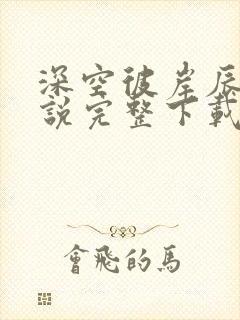 深空彼岸辰
說完整下載
會飛的馬